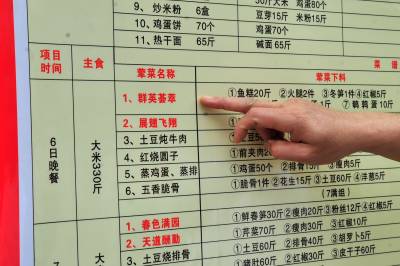 9、炒米粉 6盒
10、鸡蛋饼 70个
11、热干面 65斤
大米 鸡蛋80个
豆芽15斤 米粉15斤
碱面65斤
项目 时间
主食
荤菜名称
荤菜下料
菜 谱
6日晚餐
大米330斤
1、群英荟萃
2、展翅飞翔
3、土豆炖牛肉
4、红烧圆子
5、蒸鸡蛋、蒸排
6、五香脆骨
①鱼糕20斤 ②火腿2件 ③冬笋1件 ④红椒5斤
⑦鹌鹑蛋10斤
①前夹肉
①鸡蛋50个 ②排骨15斤 ③瘦肉5斤
①脆骨1件 ②花生15斤 ③土豆60斤 ④洋葱5斤
(7满组)
1、春色满园
2、天道酬勤
3、土豆烧排骨
①鲜春笋30斤 ②瘦肉30斤 ③粉丝12斤 ④红椒5斤
①芹菜70斤 ②瘦肉30斤 ③红椒5斤
①土豆60斤 ②排骨40斤 ③胡萝卜5斤
①猪肚10斤 ②瘦肉10斤 ③皮干子60斤